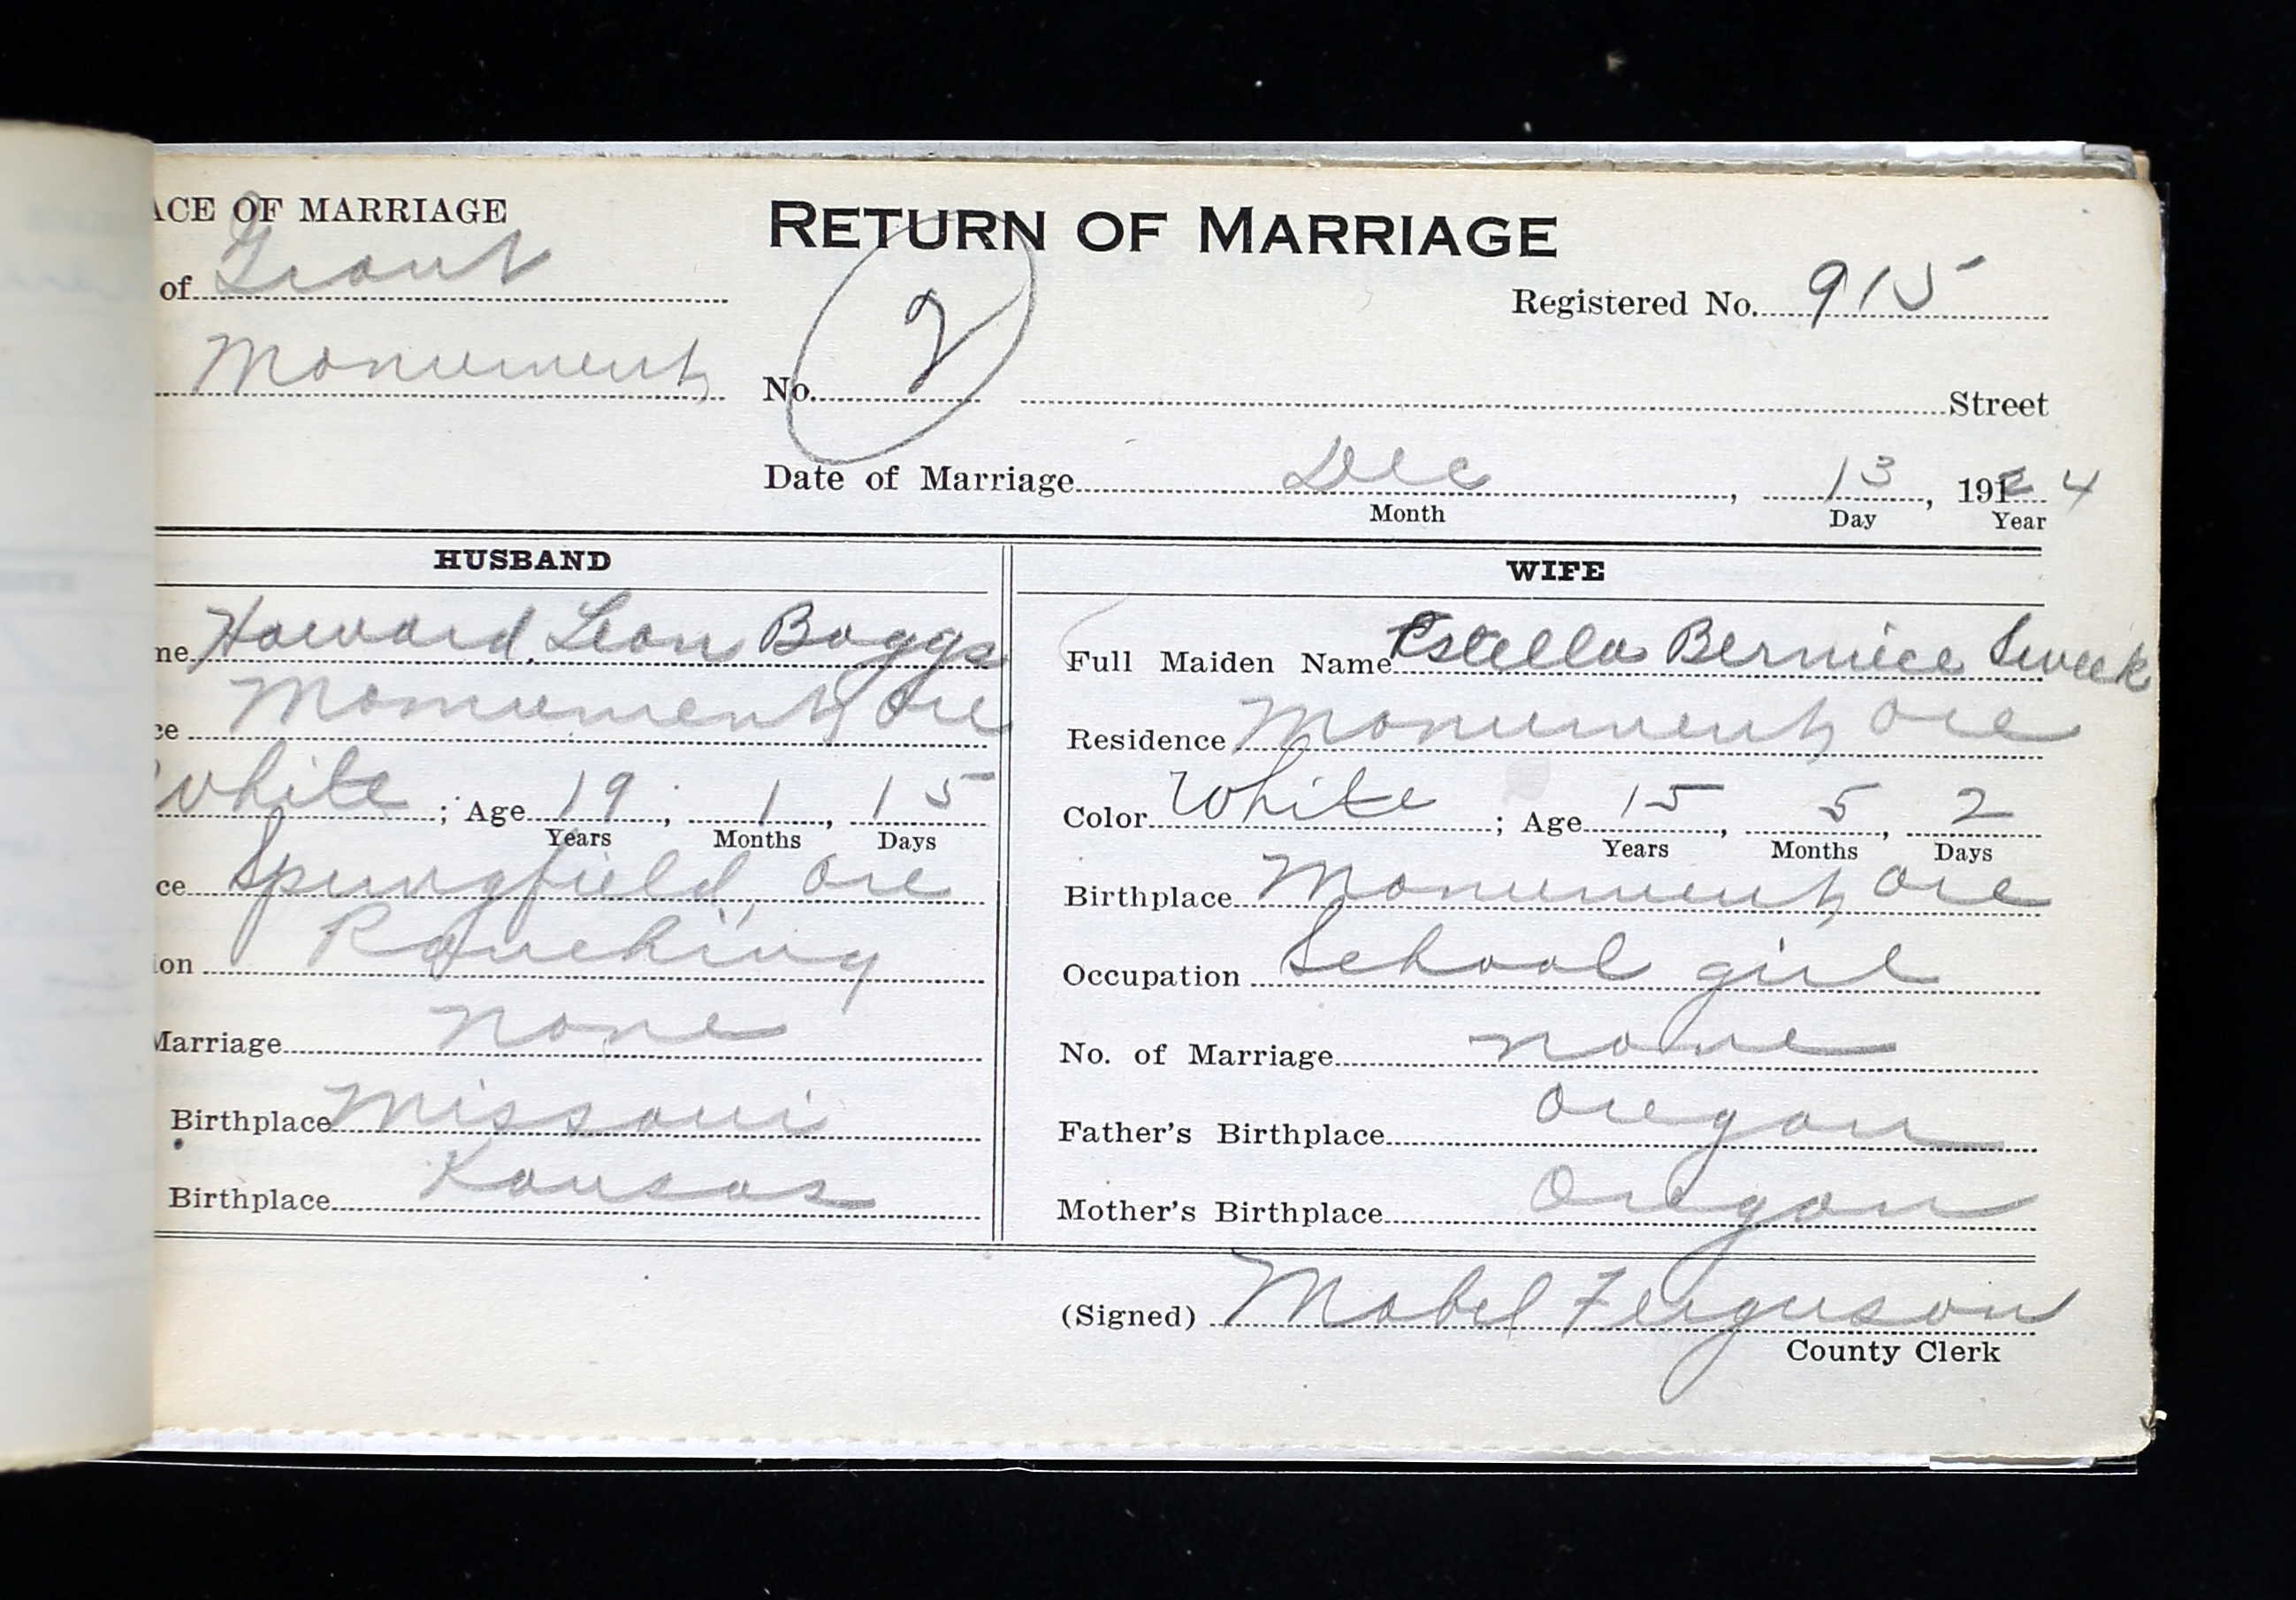 ACE OF MARRIAGE
RETURN OF MARRIAGE
of Grant
Registered No. 915
Monument
No. 2 Street
Date of Marriage Dec, 13, 1924
Month Day Year
HUSBAND
WIFE
ne Howard Leon Boggs
Full Maiden Name Estella Berniece Sweek
ce Monument, Ore
Residence Monument, Ore
White; Age 19, 1, 15
Years Months Days
Color White; Age 15, 5, 2
Years Months Days
ce Springfield, Ore
Birthplace Monument, Ore
ion Ranching
Occupation School girl
Marriage none
No. of Marriage none
Birthplace Missouri
Father's Birthplace Oregon
Birthplace Kansas
Mother's Birthplace Oregon
(Signed) Mabel Ferguson
County Clerk